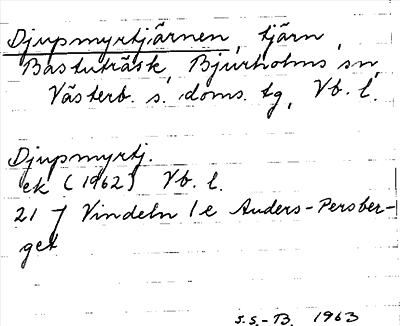 Djupmyrtjärnen, tjärn,
Bastuträsk, Bjurholms sn,
Västerb. s. doms. tg, Vb. l.
Djupmyrtj.
ek (1962) Vb. l.
21 J Vindeln 1 e Anders-Persber-
get
S.S.-B. 1963